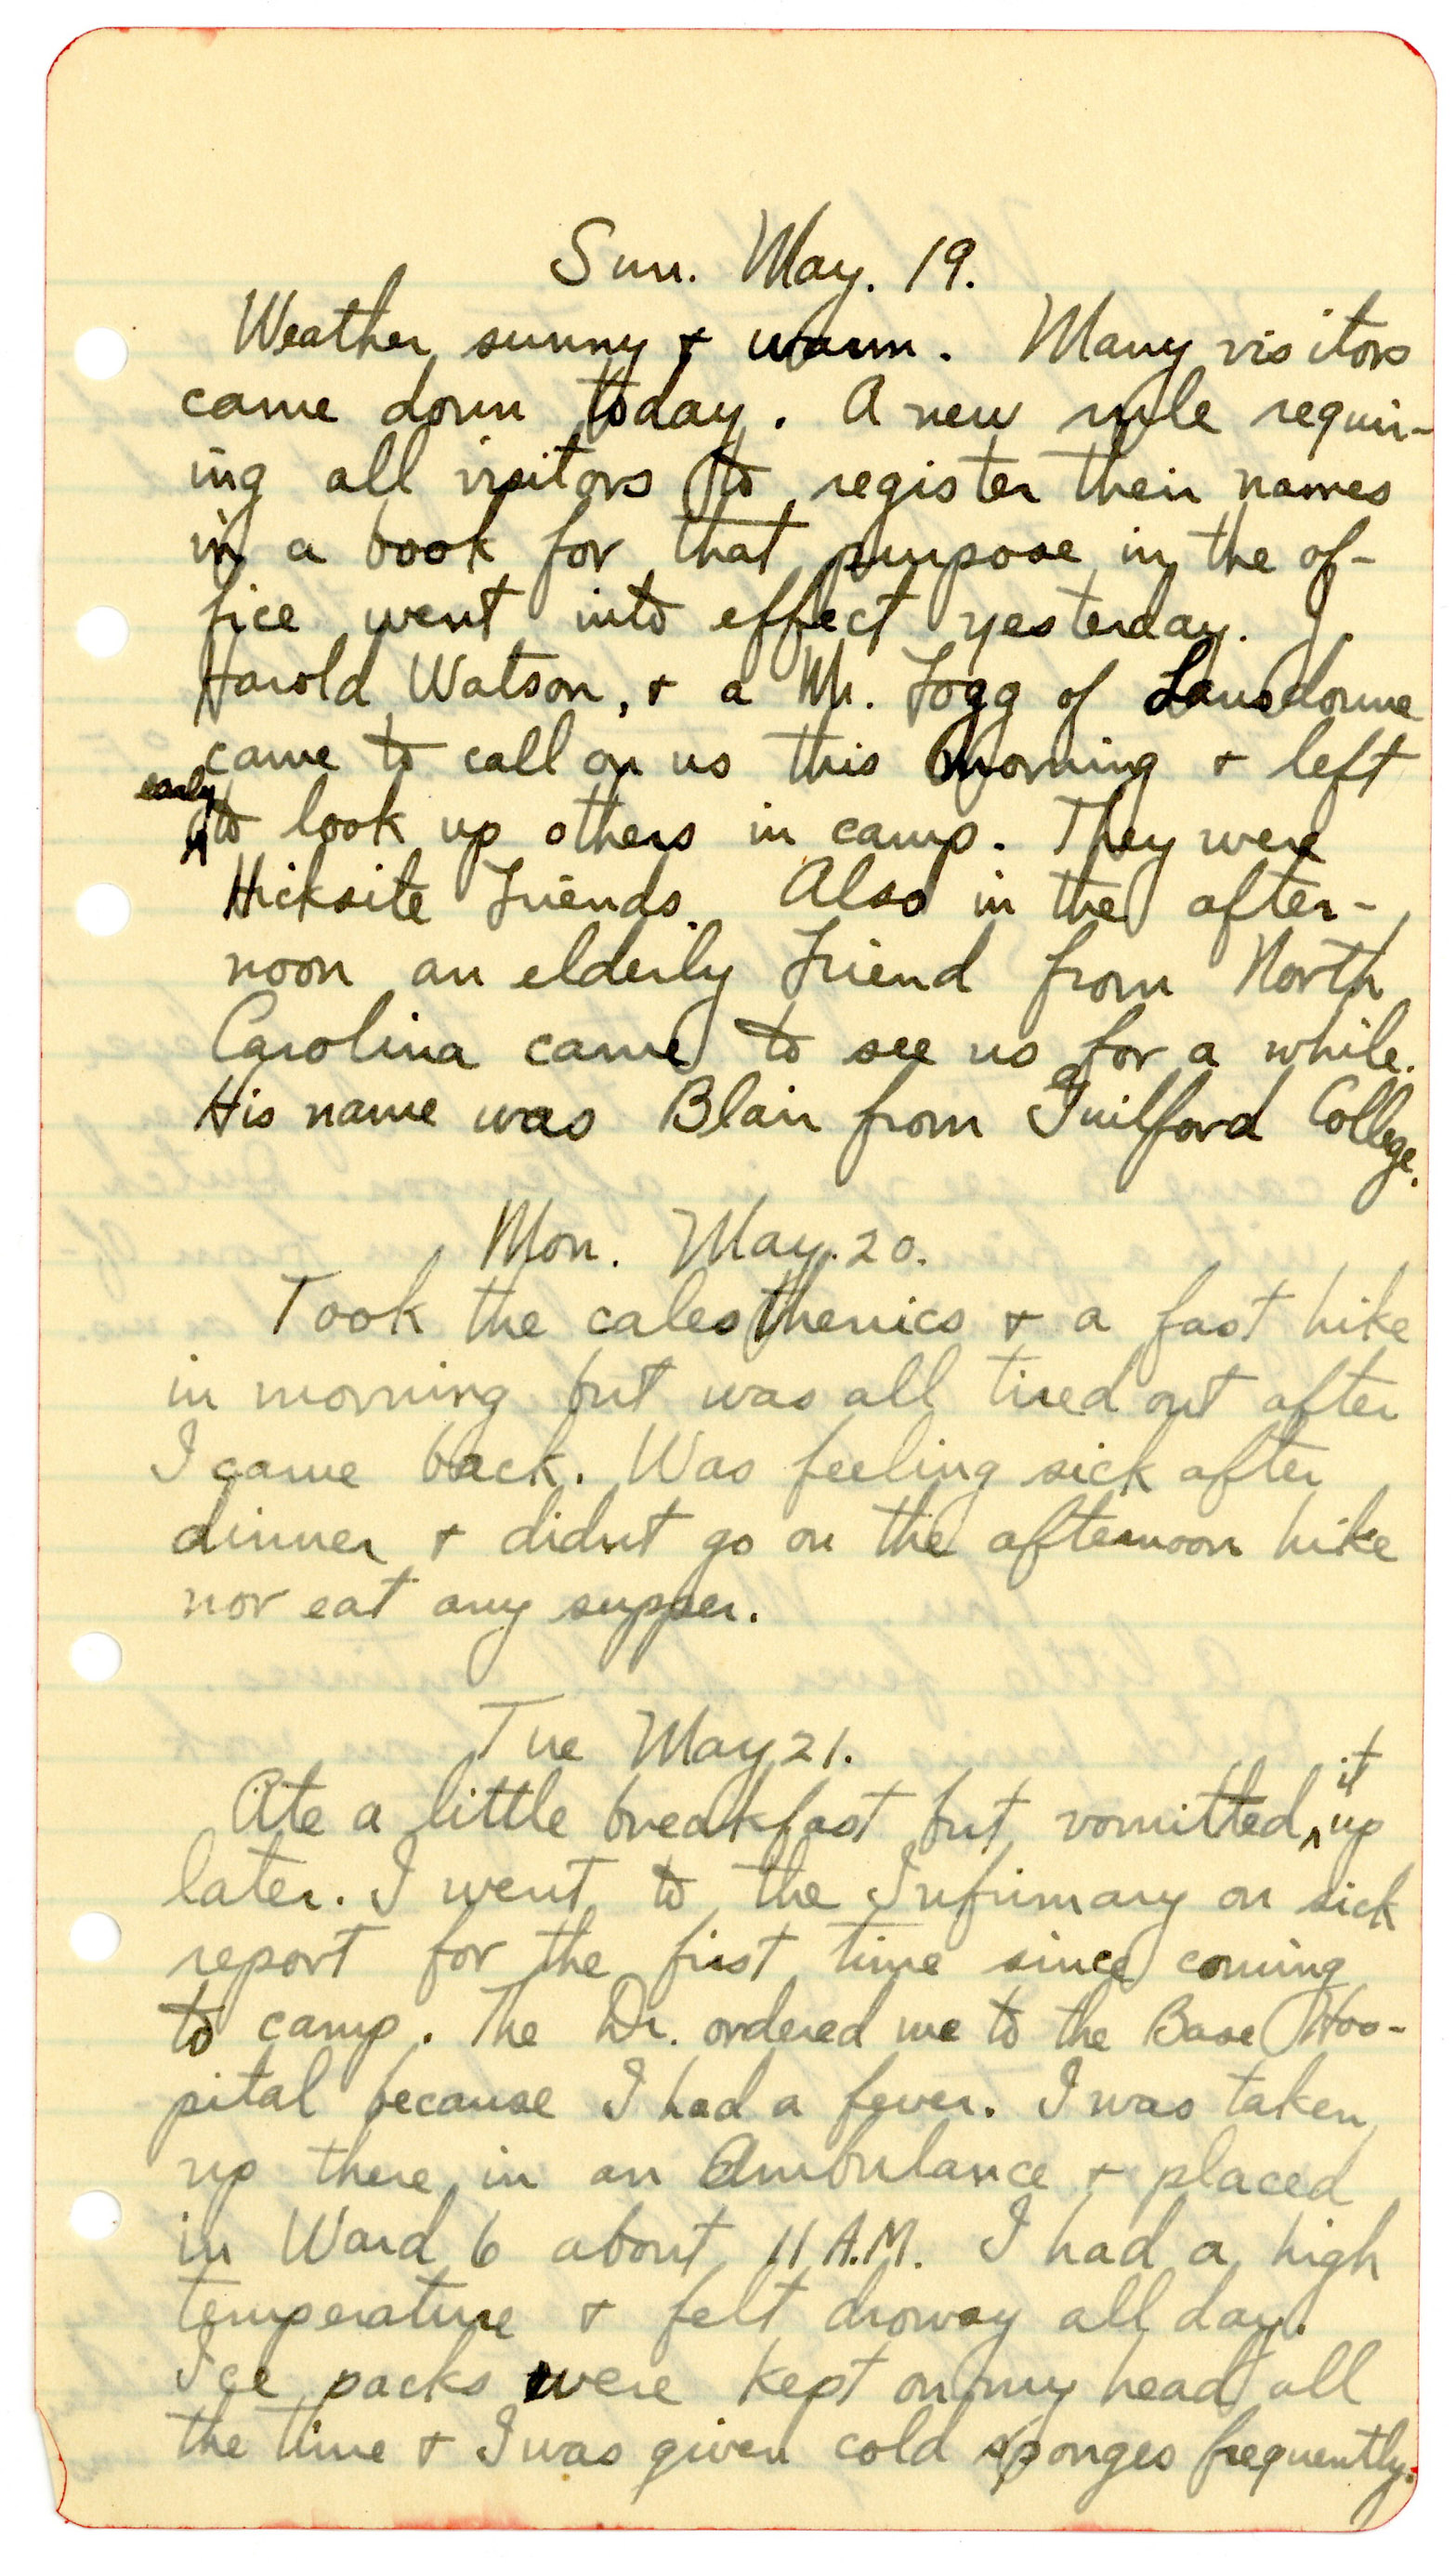 Sun. May. 19.
Weather sunny & warm. Many visitors
came down today. A new rule requir-
ing all visitors to register their names
in a book for that purpose in the of-
fice went into effect yesterday. J.
Harold Watson, & a Mr. Fogg of Lansdowne
came to call on us this morning & left
early
to look up others in camp. They were
Hicksite Friends. Also in the after-
noon an elderly Friend from North
Carolina came to see us for a while.
His name was Blair from Guilford College.
Mon. May. 20.
Took the calesthenics & a fast hike
in morning but was all tired out after
I came back. Was feeling sick after
dinner & didnt go on the afternoon hike
nor eat any supper.
Tue May 21.
Ate a little breakfast but vomitted it up
later. I went to the Infirmary on sick
report for the first time since coming
to camp. The Dr. ordered me to the Base Hos-
pital because I had a fever. I was taken
up there in an Ambulance & placed
in Ward 6 about 11 A.M. I had a high
temperature & felt drowsy all day.
Ice packs were kept on my head all
the time & I was given cold sponges frequently.